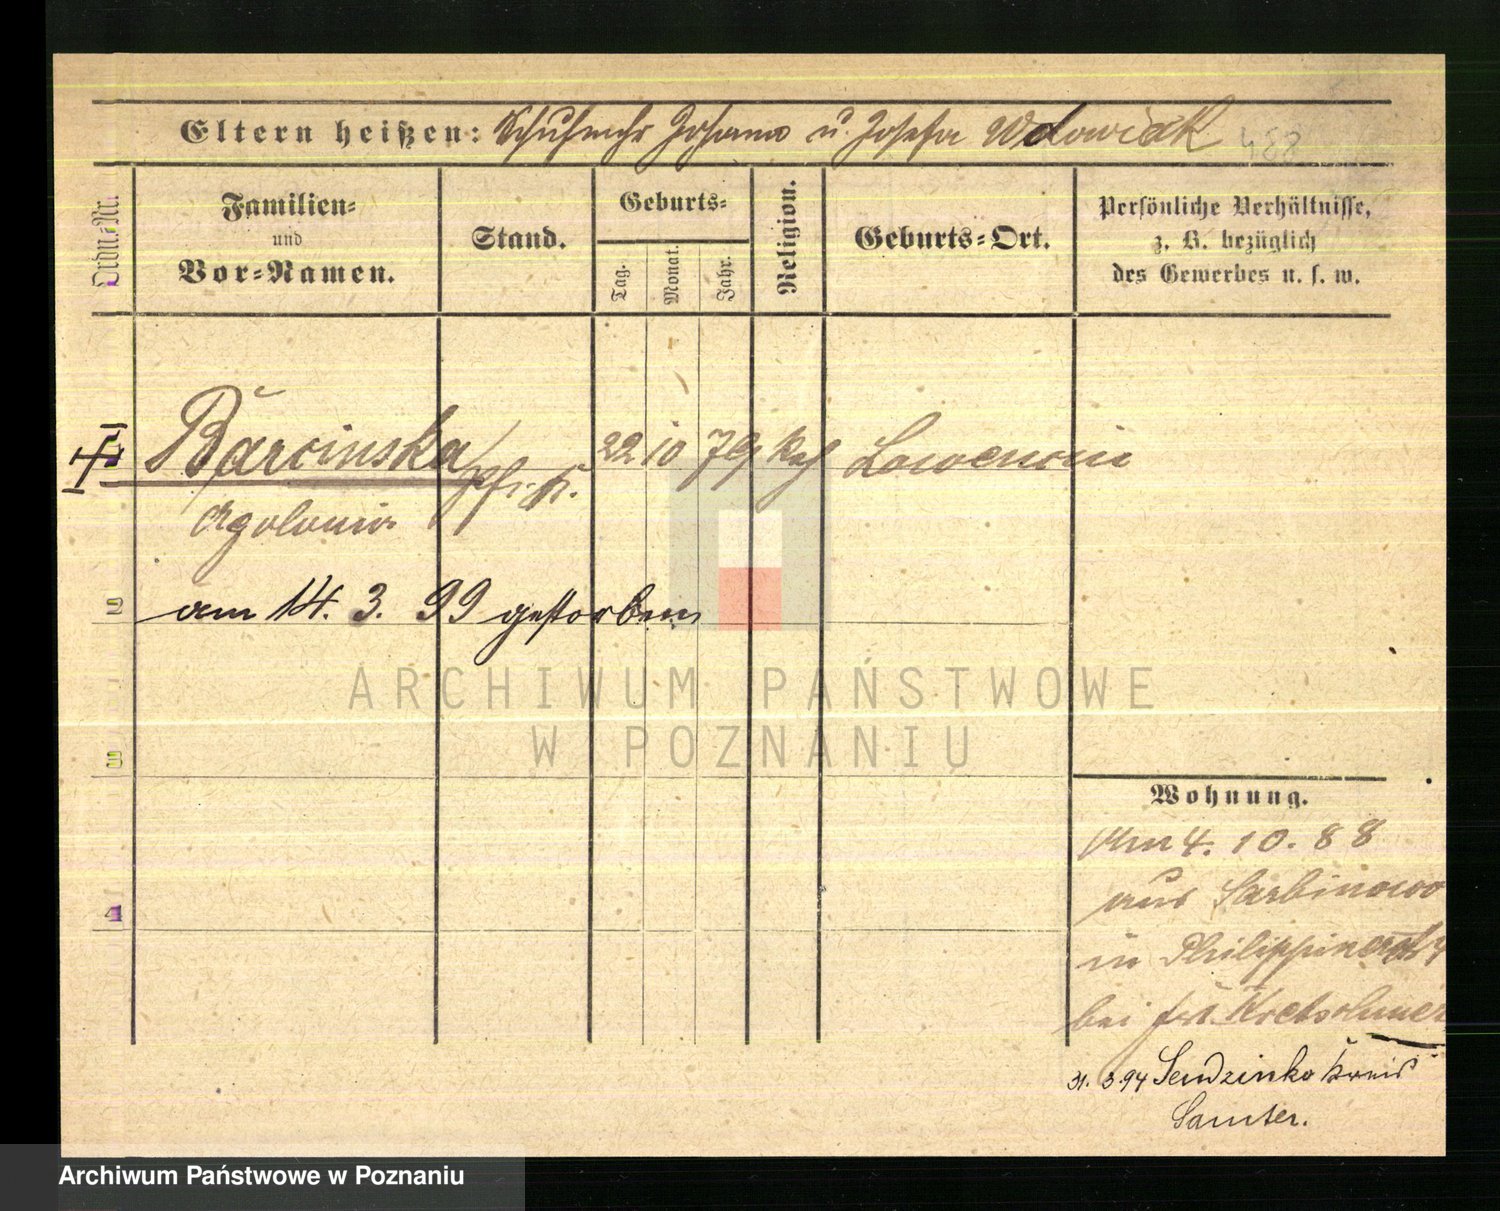 Eltern heißen: Schuhmchr Johann u. Josefa Wdowiak 488
Ordn.-Nr.
Familien-
und
Vor-Namen.
Stand.
Geburts-
Tag.
Monat.
Jahr.
Religion.
Geburts-Ort.
Persönliche Verhältnisse,
z. B. bezüglich
des Gewerbes u. s. w.
1 Barcinska 22 10 79 Kath
Apolonia
2 am 14. 3. 99 gestorben
ARCHIWUM PAŃSTWOWE
W POZNANIU
3
Wohnung.
Am 4. 10. 88
4 aus Sarbinowo
in
bei
31. 3 94 Sendzinko Kreis
Samter.
Archiwum Państwowe w Poznaniu